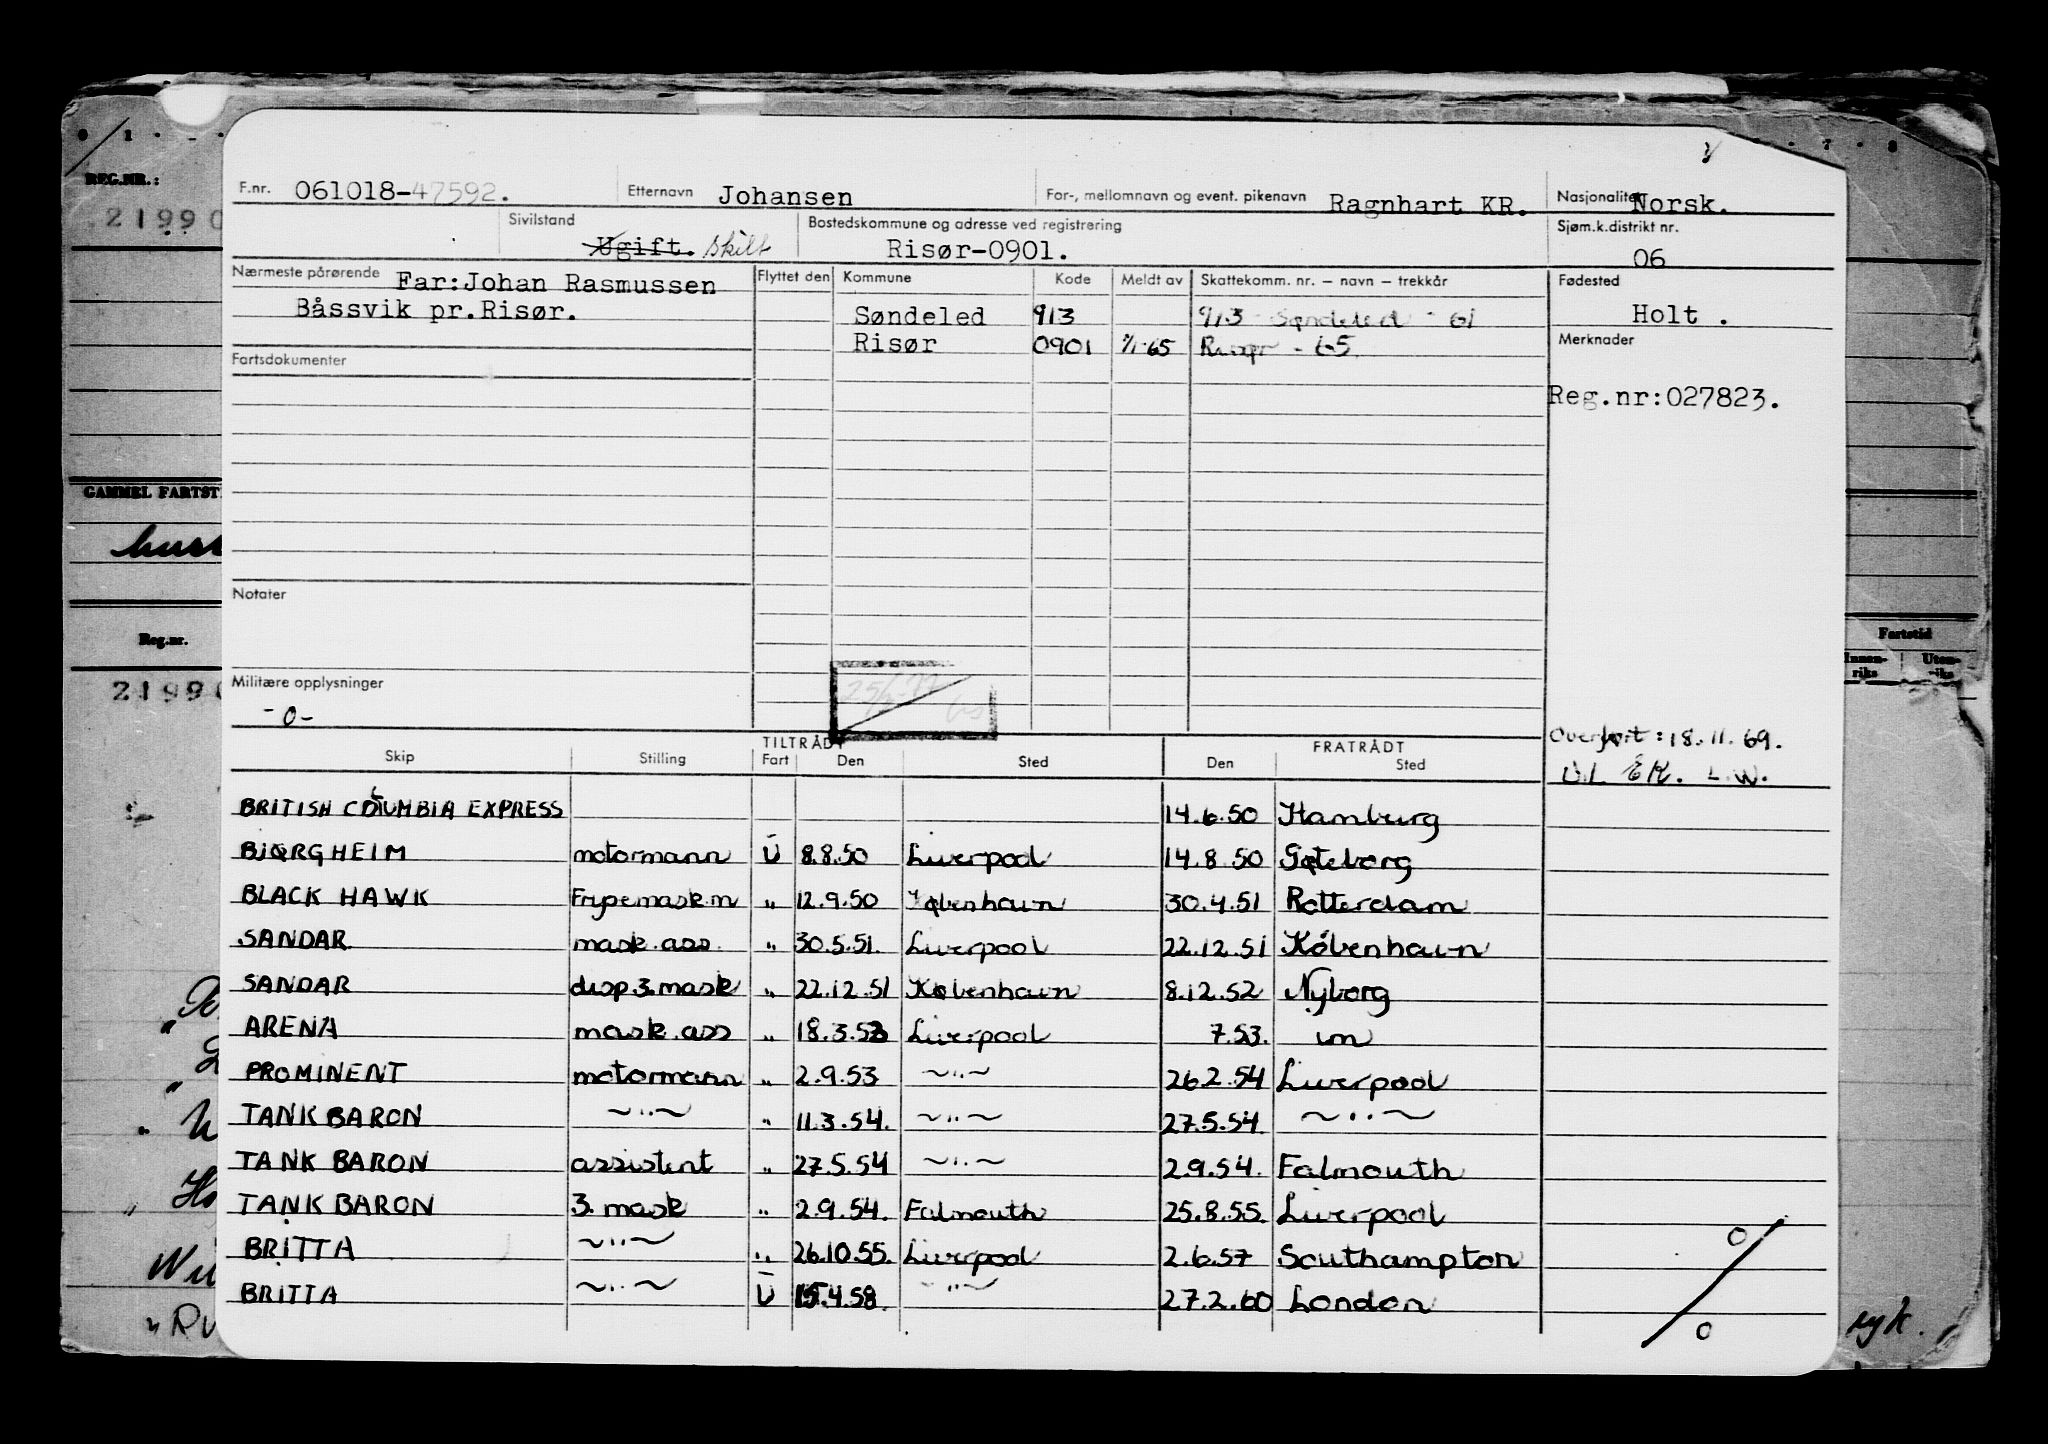 REG.NR.:
2199
GAMMEL FARTST
Reg.nr.
2199
F.nr. 061018-47592. Etternavn Johansen For-, mellomnavn og event. pikenavn Ragnhart KR. Nasjonalitet Norsk.
Sivilstand Ugift. skilt Bostedskommune og adresse ved registrering Risør-0901. Sjøm.k.distrikt nr. 06
Nærmeste pårørende Far:Johan Rasmussen Flyttet den Kommune Kode Meldt av Skattekomm. nr. – navn – trekkår Fødested
Båssvik pr.Risør. Søndeled 913 913 Søndeled - 61 Holt .
Risør 0901 1/1-65 Risør - 65 Merknader
Fartsdokumenter
Reg.nr:027823.
Notater
Fartstid
Innen-riks Uten-riks
Militære opplysninger
-0-
Overført: 18.11.69.
TILTRÅDT FRATRÅDT
Skip Stilling Fart Den Sted Den Sted
L.W.
BRITISH COLUMBIA EXPRESS 14.6.50 Hamburg
BJØRGHEIM motormann U 8.8.50 Liverpool 14.8.50 Gøteborg
BLACK HAWK Frysemask.m " 12.9.50 København 30.4.51 Rotterdam
SANDAR mask.ass. " 30.5.51. Liverpool 22.12.51 København
SANDAR disp 3.mask " 22.12.51 København 8.12.52 Nyborg
ARENA mask.ass " 18.3.53 Liverpool 7.53. im
PROMINENT motormann " 2.9.53 ~"~ 26.2.54 Liverpool
TANK BARON ~"~ " 11.3.54. ~"~ 27.5.54 ~"~
TANK BARON assistent " 27.5.54 ~"~ 2.9.54. Falmouth
TANK BARON 3. mask " 2.9.54. Falmouth 25.8.55. Liverpool
BRITTA ~"~ " 26.10.55. Liverpool 2.6.57 Southampton
BRITTA ~"~ U 15.4.58. "~ 27.2.60 London